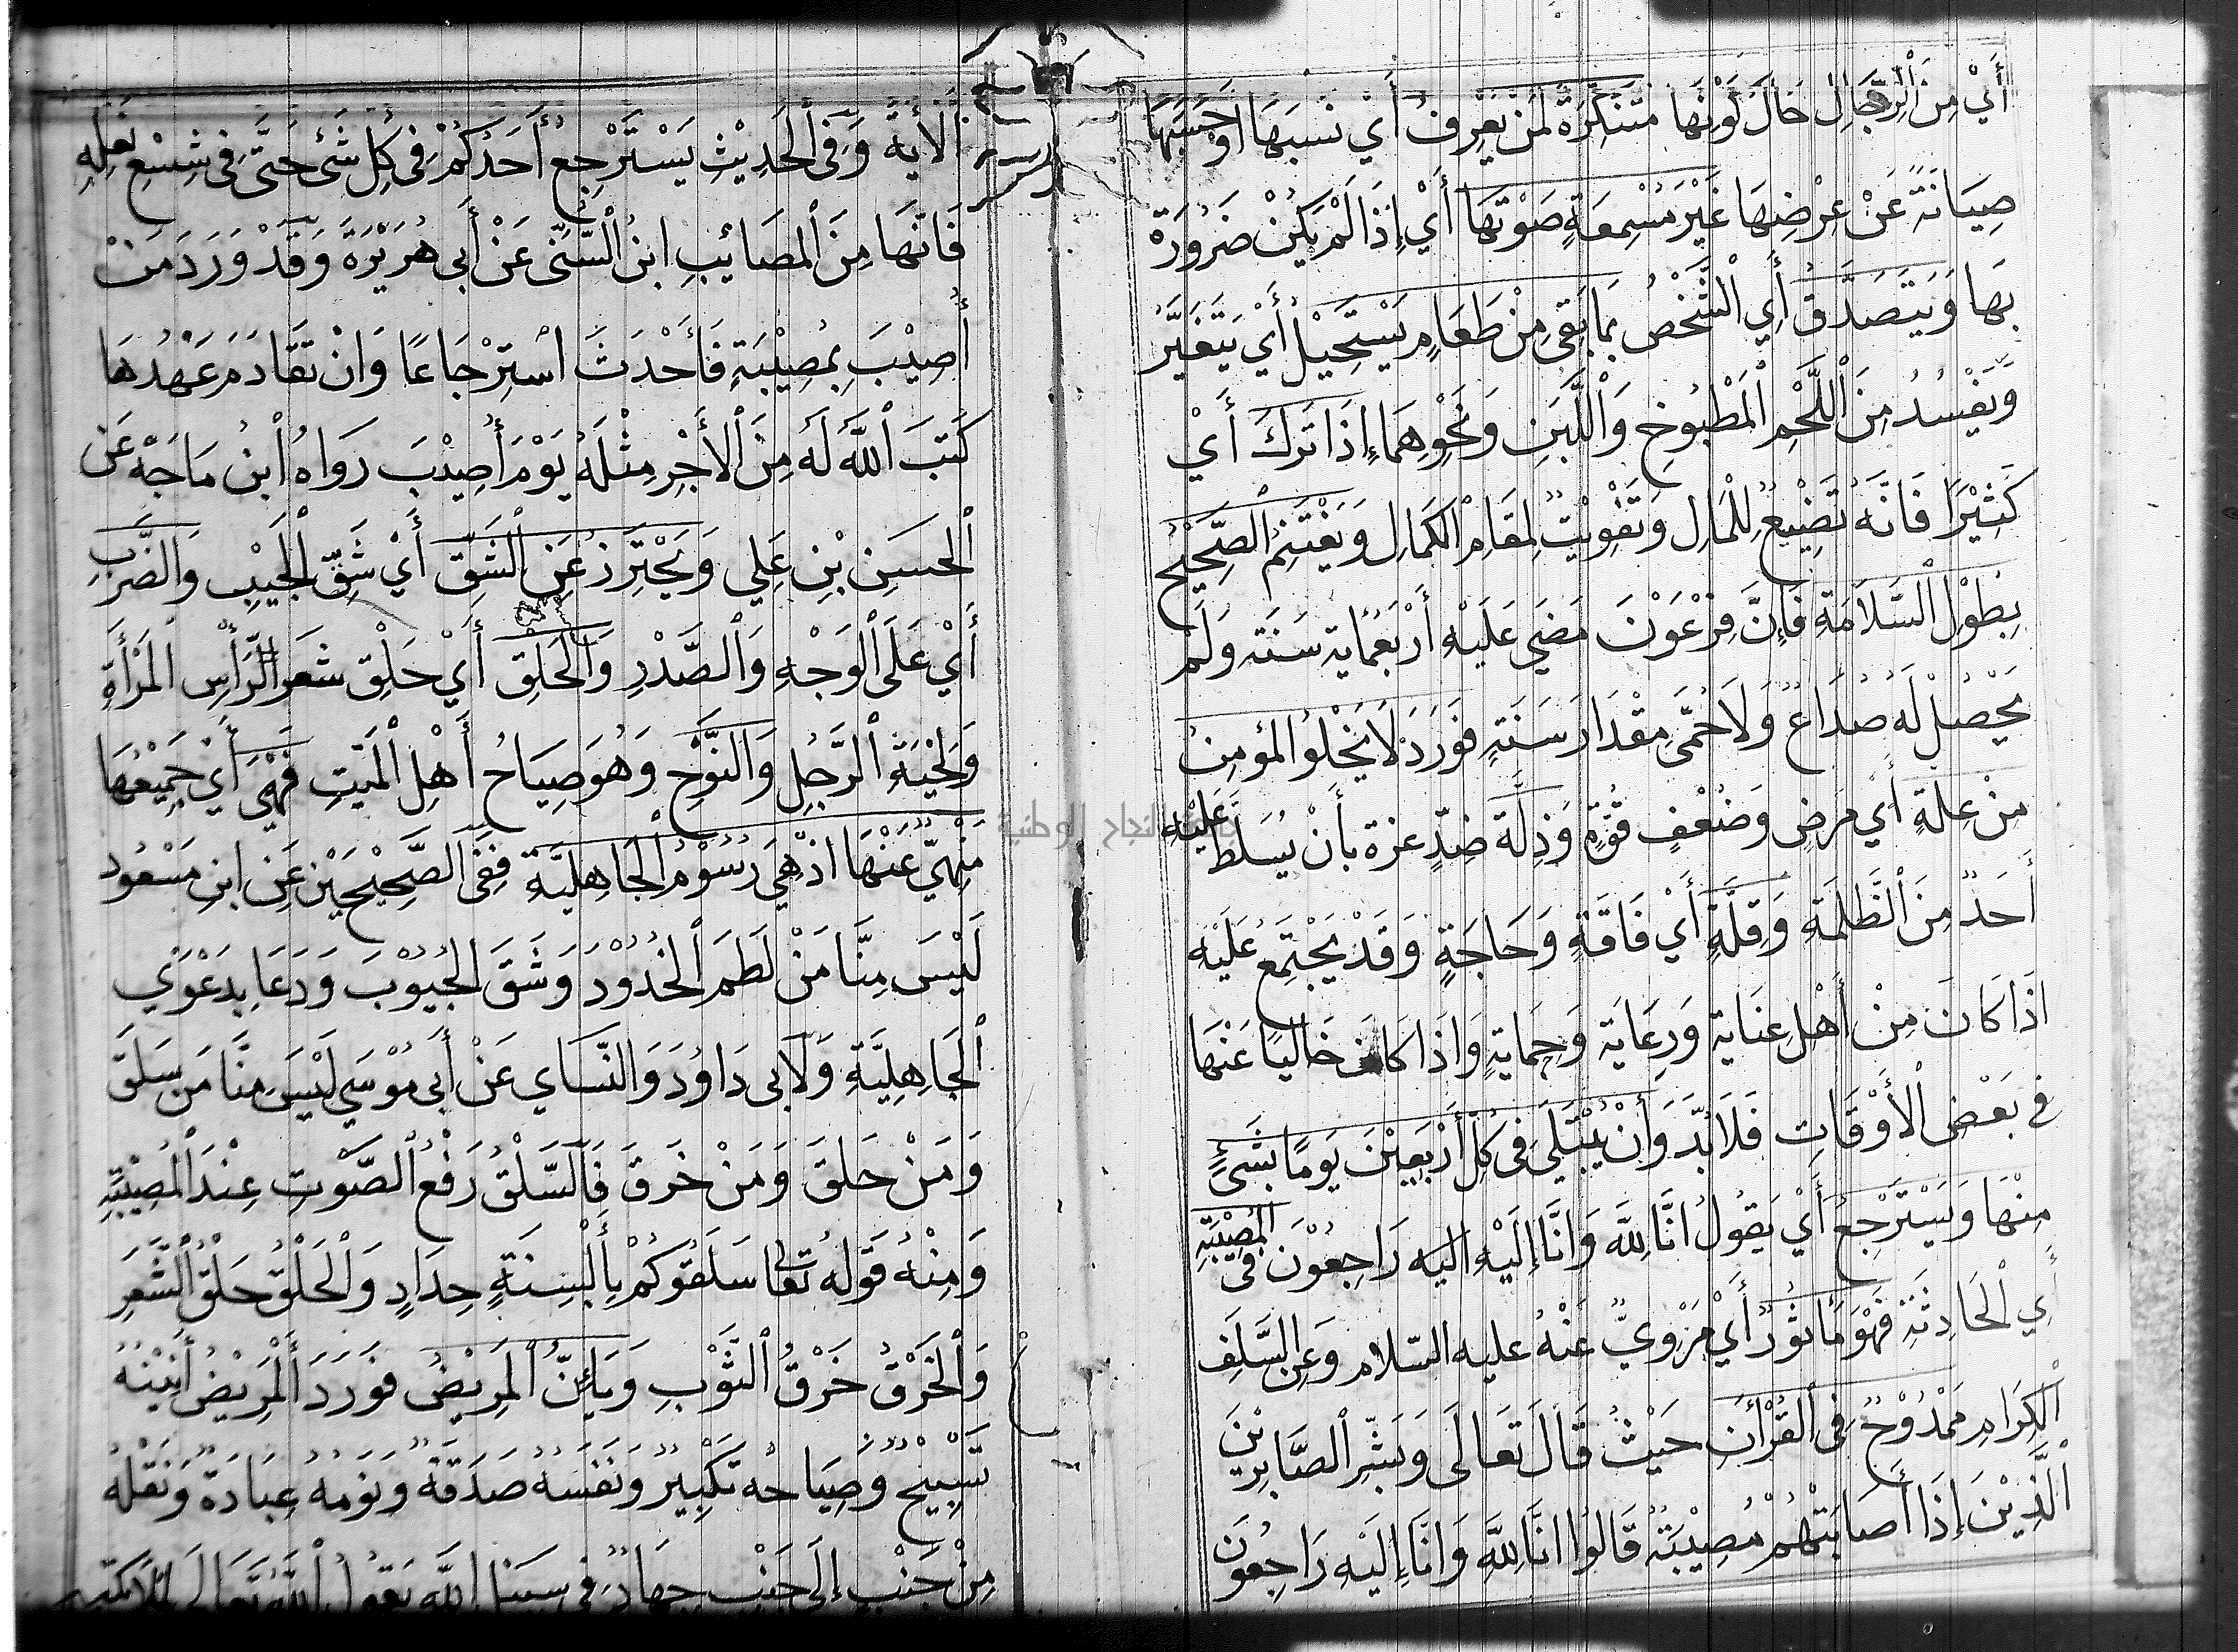 أَيْ مِنَ ٱلرِّجَالِ حَالَ كَوْنِهَا مُتَنَكِّرَةً لِمَنْ يَعْرِفُ أَيْ نَسَبَهَا أَوْ حَسَبَهَا
صِيَانَةً عَنْ عِرْضِهَا غَيْرَ مُسْمِعَةٍ صَوْتَهَا أَيْ إِذَا لَمْ يَكُنْ ضَرُورَة
بِهَا وَيَتَصَدَّقُ أَيِ ٱلشَّخْصُ بِمَا بَقِيَ مِنْ طَعَامٍ يَسْتَحِيْلُ أَيْ يَتَغَيَّرُ
وَيَفْسُدُ مِنَ ٱللَّحْمِ ٱلْمَطْبُوخِ وَٱللَّبَنِ وَنَحْوِهِمَا إِذَا تَرَكَ أَيْ
كَثِيْرًا فَانَّهُ تَضْيِيعٌ لِلْمَالِ وَتَفْوِيْتٌ لِمَقَامِ الْكَمَالِ وَيَغْتَنِمُ ٱلصَّحِيْحُ
بِطُوْلِ ٱلسَّلَامَةِ فَإِنَّ فِرْعَوْنَ مَضَي عَلَيْهِ أَرْبَعُمِايَة سَنَة وَلَمْ
يَحْصُلْ لَهُ صُدَاعٌ وَلَا حُمَّى مِقْدَارَ سَنَتِهِ فَوَرَدَ لَا يَخْلُوا المؤمِنُ
مِنْ عِلَّةٍ أَيْ مَرَضٍ وَضُعْفِ قُوَّةٍ وَذِلَّة ضِدِّ عزة بأَنْ يُسَلَّطَ عَلَيْهِ
أَحَدٌ مِنَ ٱلظَّلَمَةِ وَقِلَّةٍ أَيْ فَاقَةٍ وَحَاجَةٍ وَقَدْ يَجْتَمِعُ عَلَيْهِ
اذَا كَانَ مِنْ أَهْلِ عِنَاية وَرِعَايَة وَحِمَايَةٍ وَاذَا كَانَ خَالِيًا عَنْهَا
فِي بَعْضِ ٱلْأَوْقَاتِ فَلَا بُدَّ وَأَنْ يُبْتَلَيَ فِى كُلِّ أَرْبَعِيْنَ يَوْمًا بِشَيْءٍ
مِنْهَا وَيَسْتَرْجِعُ أَيْ يَقُولُ انَّا لِلَّهِ وَانَّا إِلَيْهِ اليه رَاجِعُوْنَ فِى المُصِيْبَةِ
أَيِ ٱلْحَادِثَةِ فَهُوَ مَأثُورٌ أَيْ مَرْوِيٌّ عَنْهُ عليه السّلام وَعَنِ السَّلَفِ
ٱلْكِرَامِ مَمْدُوْحٌ فِى ٱلْقُرْأنِ حَيْثُ قَالَ تَعَالَى وَبَشِّرِ ٱلصَّابِرِيْنَ
ٱلَّذِيْنَ إِذَا أَصَابَتْهُمْ مُصِيْبَةٌ قَالُوا انَّا لِلَّهِ وَانَّا إِلَيْهِ رَاجِعُونَ
ٱلْأَيَة وَفِى ٱلْحَدِيْثِ يَسْتَرْجِعُ أَحَدُكُمْ فِى كُلِّ شَئ حَتَّى فِى شِسْعِ نَعْلِهِ
فَانَّهَا مِنَ ٱلْمَصَائِبِ ابنُ ٱلسُّنِّى عَنْ أَبِى هُرَيْرَةَ وَقَدْ وَرَدَ مَنْ
أُصِيْبَ بِمُصِيْبَةٍ فَأَحْدَثَ اسْتِرْجَاعًا وَانْ تَقَادَمَ عَهْدُهَا
كَتَبَ ٱللَّهُ لَهُ مِنَ ٱلْأَجْرِ مِثْلَهُ يَوْمَ أُصِيْبَ رَوَاهُ ٱبنُ مَاجَهْ عَن
ٱلحسَين بْنِ عَلِي وَيَحْتَرِزُ عَنِ ٱلشَّقِّ أَيْ شَقِّ ٱلْجَيْبِ وَالضَّرْبِ
أَيْ عَلَى ٱلْوَجْهِ وَٱلصَّدْرِ وَالْحَلْقِ أَيْ حَلْقِ شَعَرِ الرَّأْسِ المَرْأَةِ
وَلِحْيَةِ ٱلرَّجُلِ وَالنَّوْحِ وَهُوَ صِيَاحُ أَهْلِ ٱلْمَيِّتِ فَهْيَ أَيْ جَمِيْعُهَا
مَنْهِيٌّ عَنْهَا اذْ هِيَ رُسُوْمُ ٱلْجَاهِلِيَّة فَفِى ٱلصَّحِيْحَيْنِ عَنِ ابنِ مَسْعُود
لَيْسَ مِنَّا مَنْ لَطَمَ ٱلْخُدُوْدَ وَشَقَّ الْجُيُوْبَ وَدَعَا بِدَعْوَي
ٱلْجَاهِلِيَّةِ وَلِأَبى دَاوُدَ وَالنَّسَاي عَنْ أَبِى مُوْسَي لَيْسَ مِنَّا مَن سَلَقَ
وَمَنْ حَلَقَ وَمَنْ خَرَقَ فَٱلسَّلْقُ رَفْعُ ٱلصَّوْتِ عِنْدَ ٱلْمُصِيْبَةِ
وَمِنْهُ قَوْلُهُ تَعَالَى سَلَقُوكُمْ بِأَلْسِنَةٍ حِدَادٍ وَٱلْحَلْقُ حَلْقُ ٱلشَّعَرِ
وَٱلْخَرْقُ خَرْقُ ٱلثَّوْبِ وَيَأِنُّ ٱلْمَرِيْضُ فَوَرَدَ ٱلْمَرِيْضُ أَنِيْنُهُ
تَسْبِيْحٌ وَصِيَاحُه تَكْبِيْرٌ وَنَفَسُهُ صَدَقَةٌ وَنَوْمُهُ عِبَادَةٌ وَنَقْلُهُ
مِنْ جَنْبٍ إِلَى جَنْبٍ جِهَادٌ فِى سَبِيْلِ ٱللَّهِ يَقُولُ ٱللَّهُ تَعَالَى لِمَلَائِكَتِهِ
جامعة النجاح الوطنية